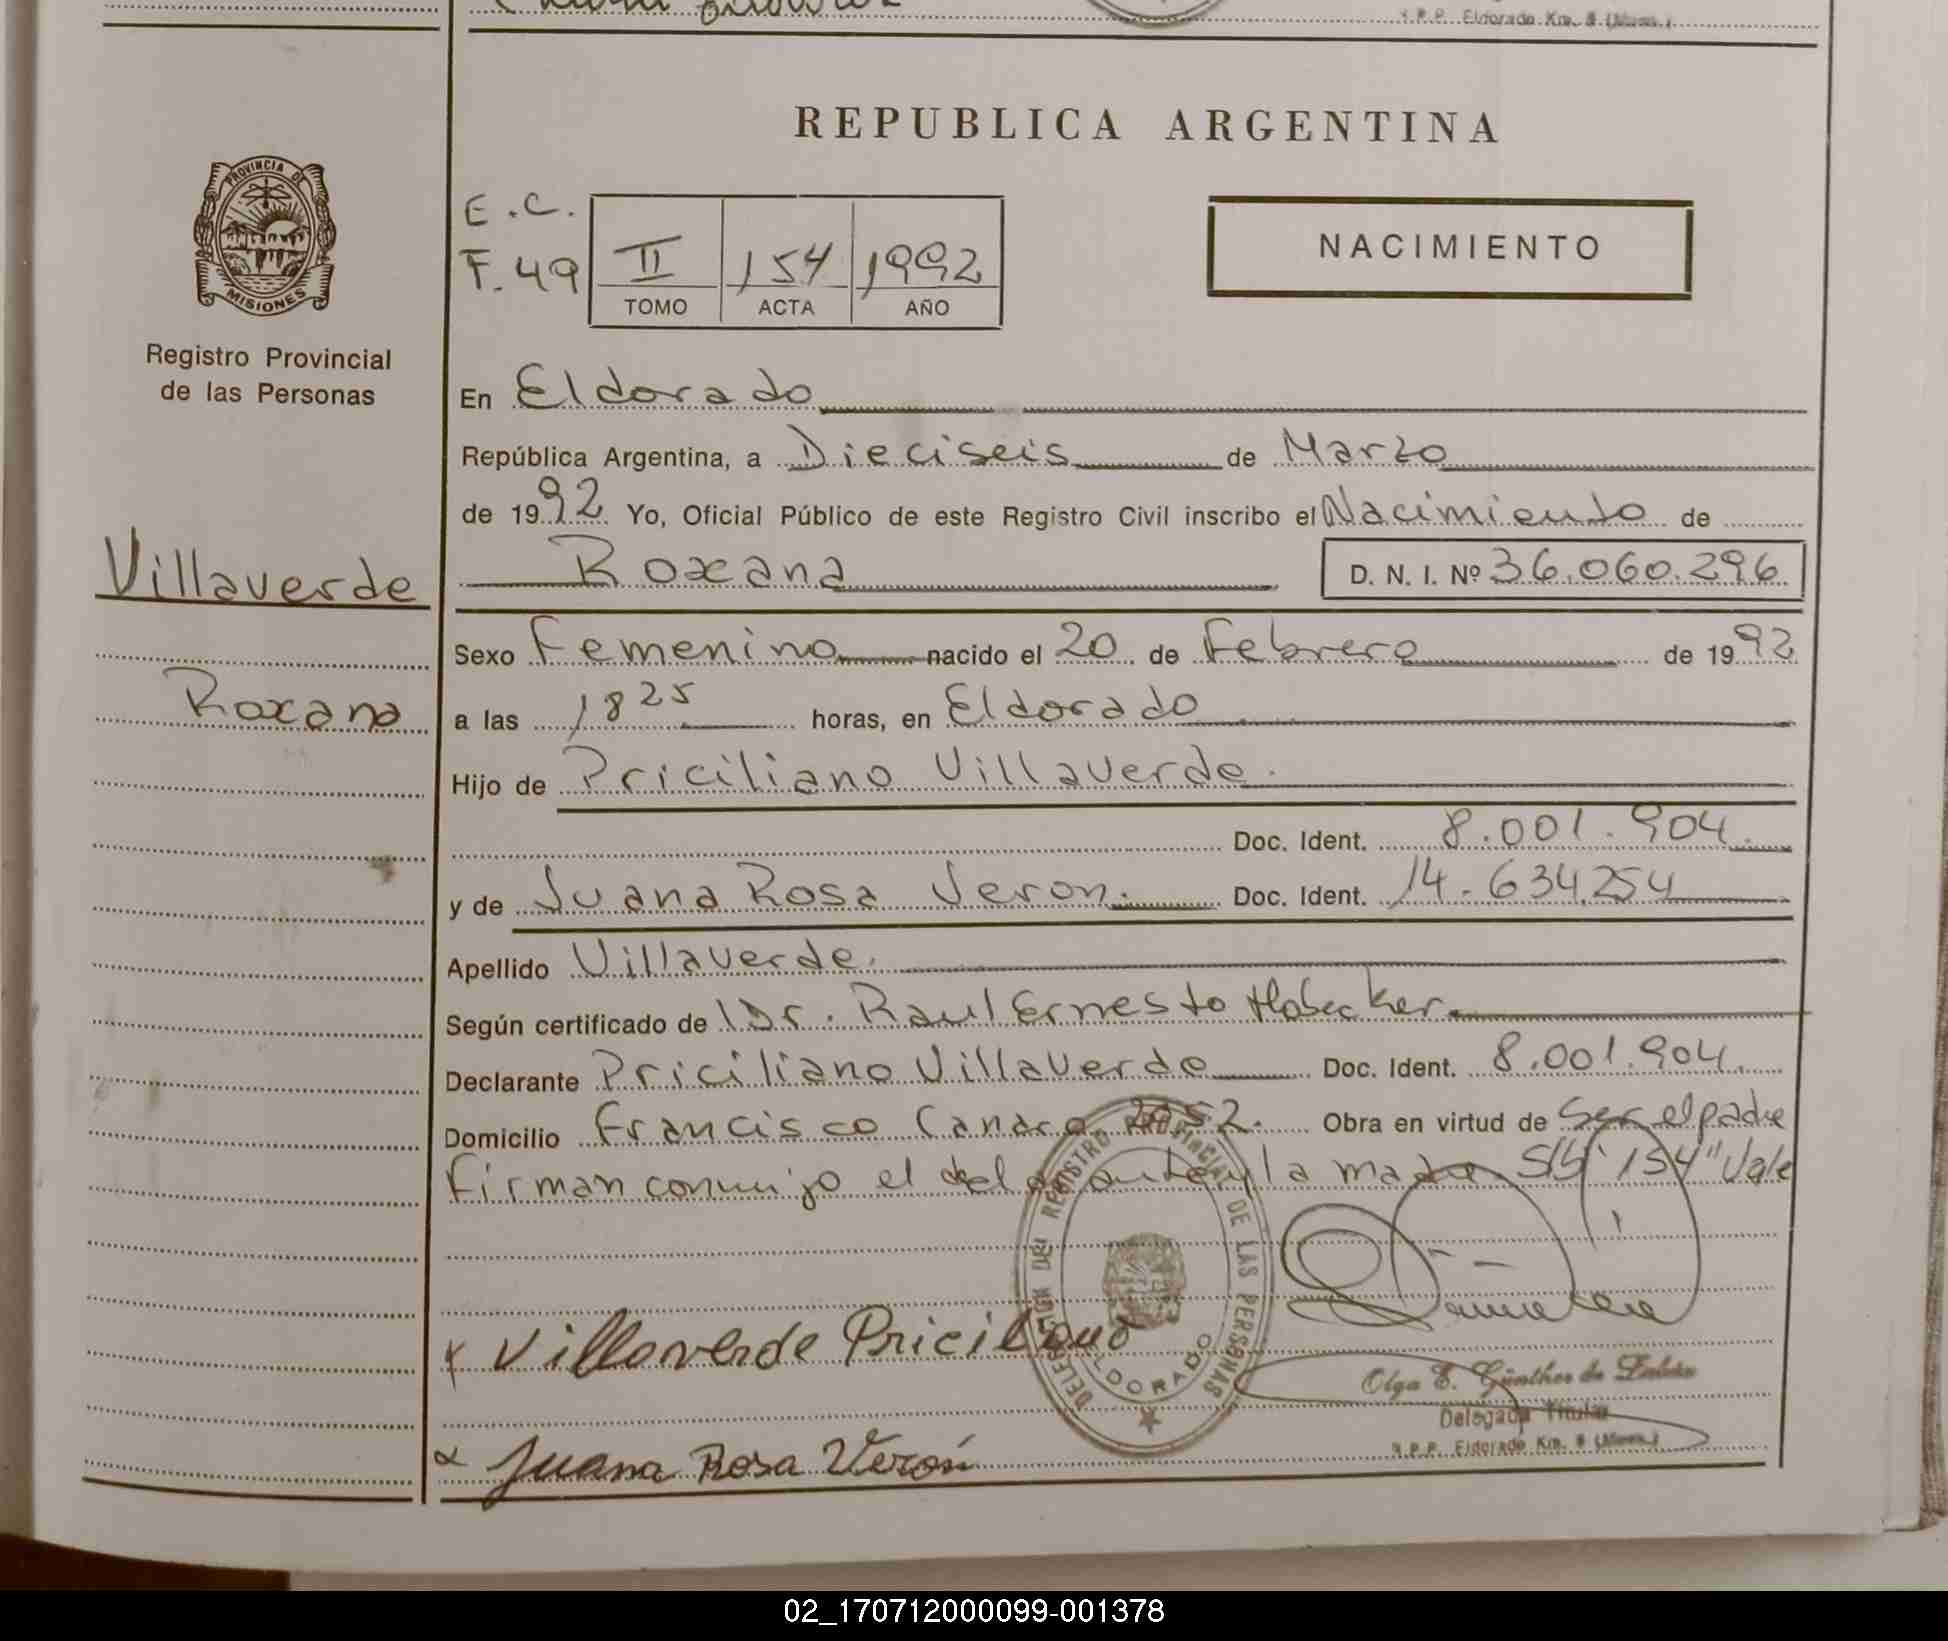 S.P.P. Eldorado Km. 8 (Mnes.)
REPUBLICA ARGENTINA
PROVINCIA DE
MISIONES
Registro Provincial
de las Personas
E.C.
F. 49
II 154 1992
TOMO ACTA AÑO
NACIMIENTO
En Eldorado
República Argentina, a Dieciseis de Marzo
de 1992 Yo, Oficial Público de este Registro Civil inscribo el Nacimiento de
Villaverde
Roxana
Roxana D. N. I. Nº 36.060.296
Sexo Femenino nacido el 20 de Febrero de 1992
a las 18 25 horas, en Eldorado
Hijo de Priciliano Villaverde.
Doc. Ident. 8.001.904.
y de Juana Rosa Veron. Doc. Ident. 14.634.254
Apellido Villaverde.
Según certificado de Dr. Raul Ernesto Hobecker.
Declarante Priciliano Villaverde Doc. Ident. 8.001.904.
Domicilio Francisco Canaro 2052. Obra en virtud de Ser el padre
firman conmigo el y la madre S/b "154" Vale
DELEGACION DEL REGISTRO PROVINCIAL DE LAS PERSONAS
ELDORADO
x Villaverde Priciliano
Olga E. Günther de
Delegada Titular
x Juana Rosa Verón
R.P.P. Eldorado Km. 8 (Mnes.)
02_170712000099-001378